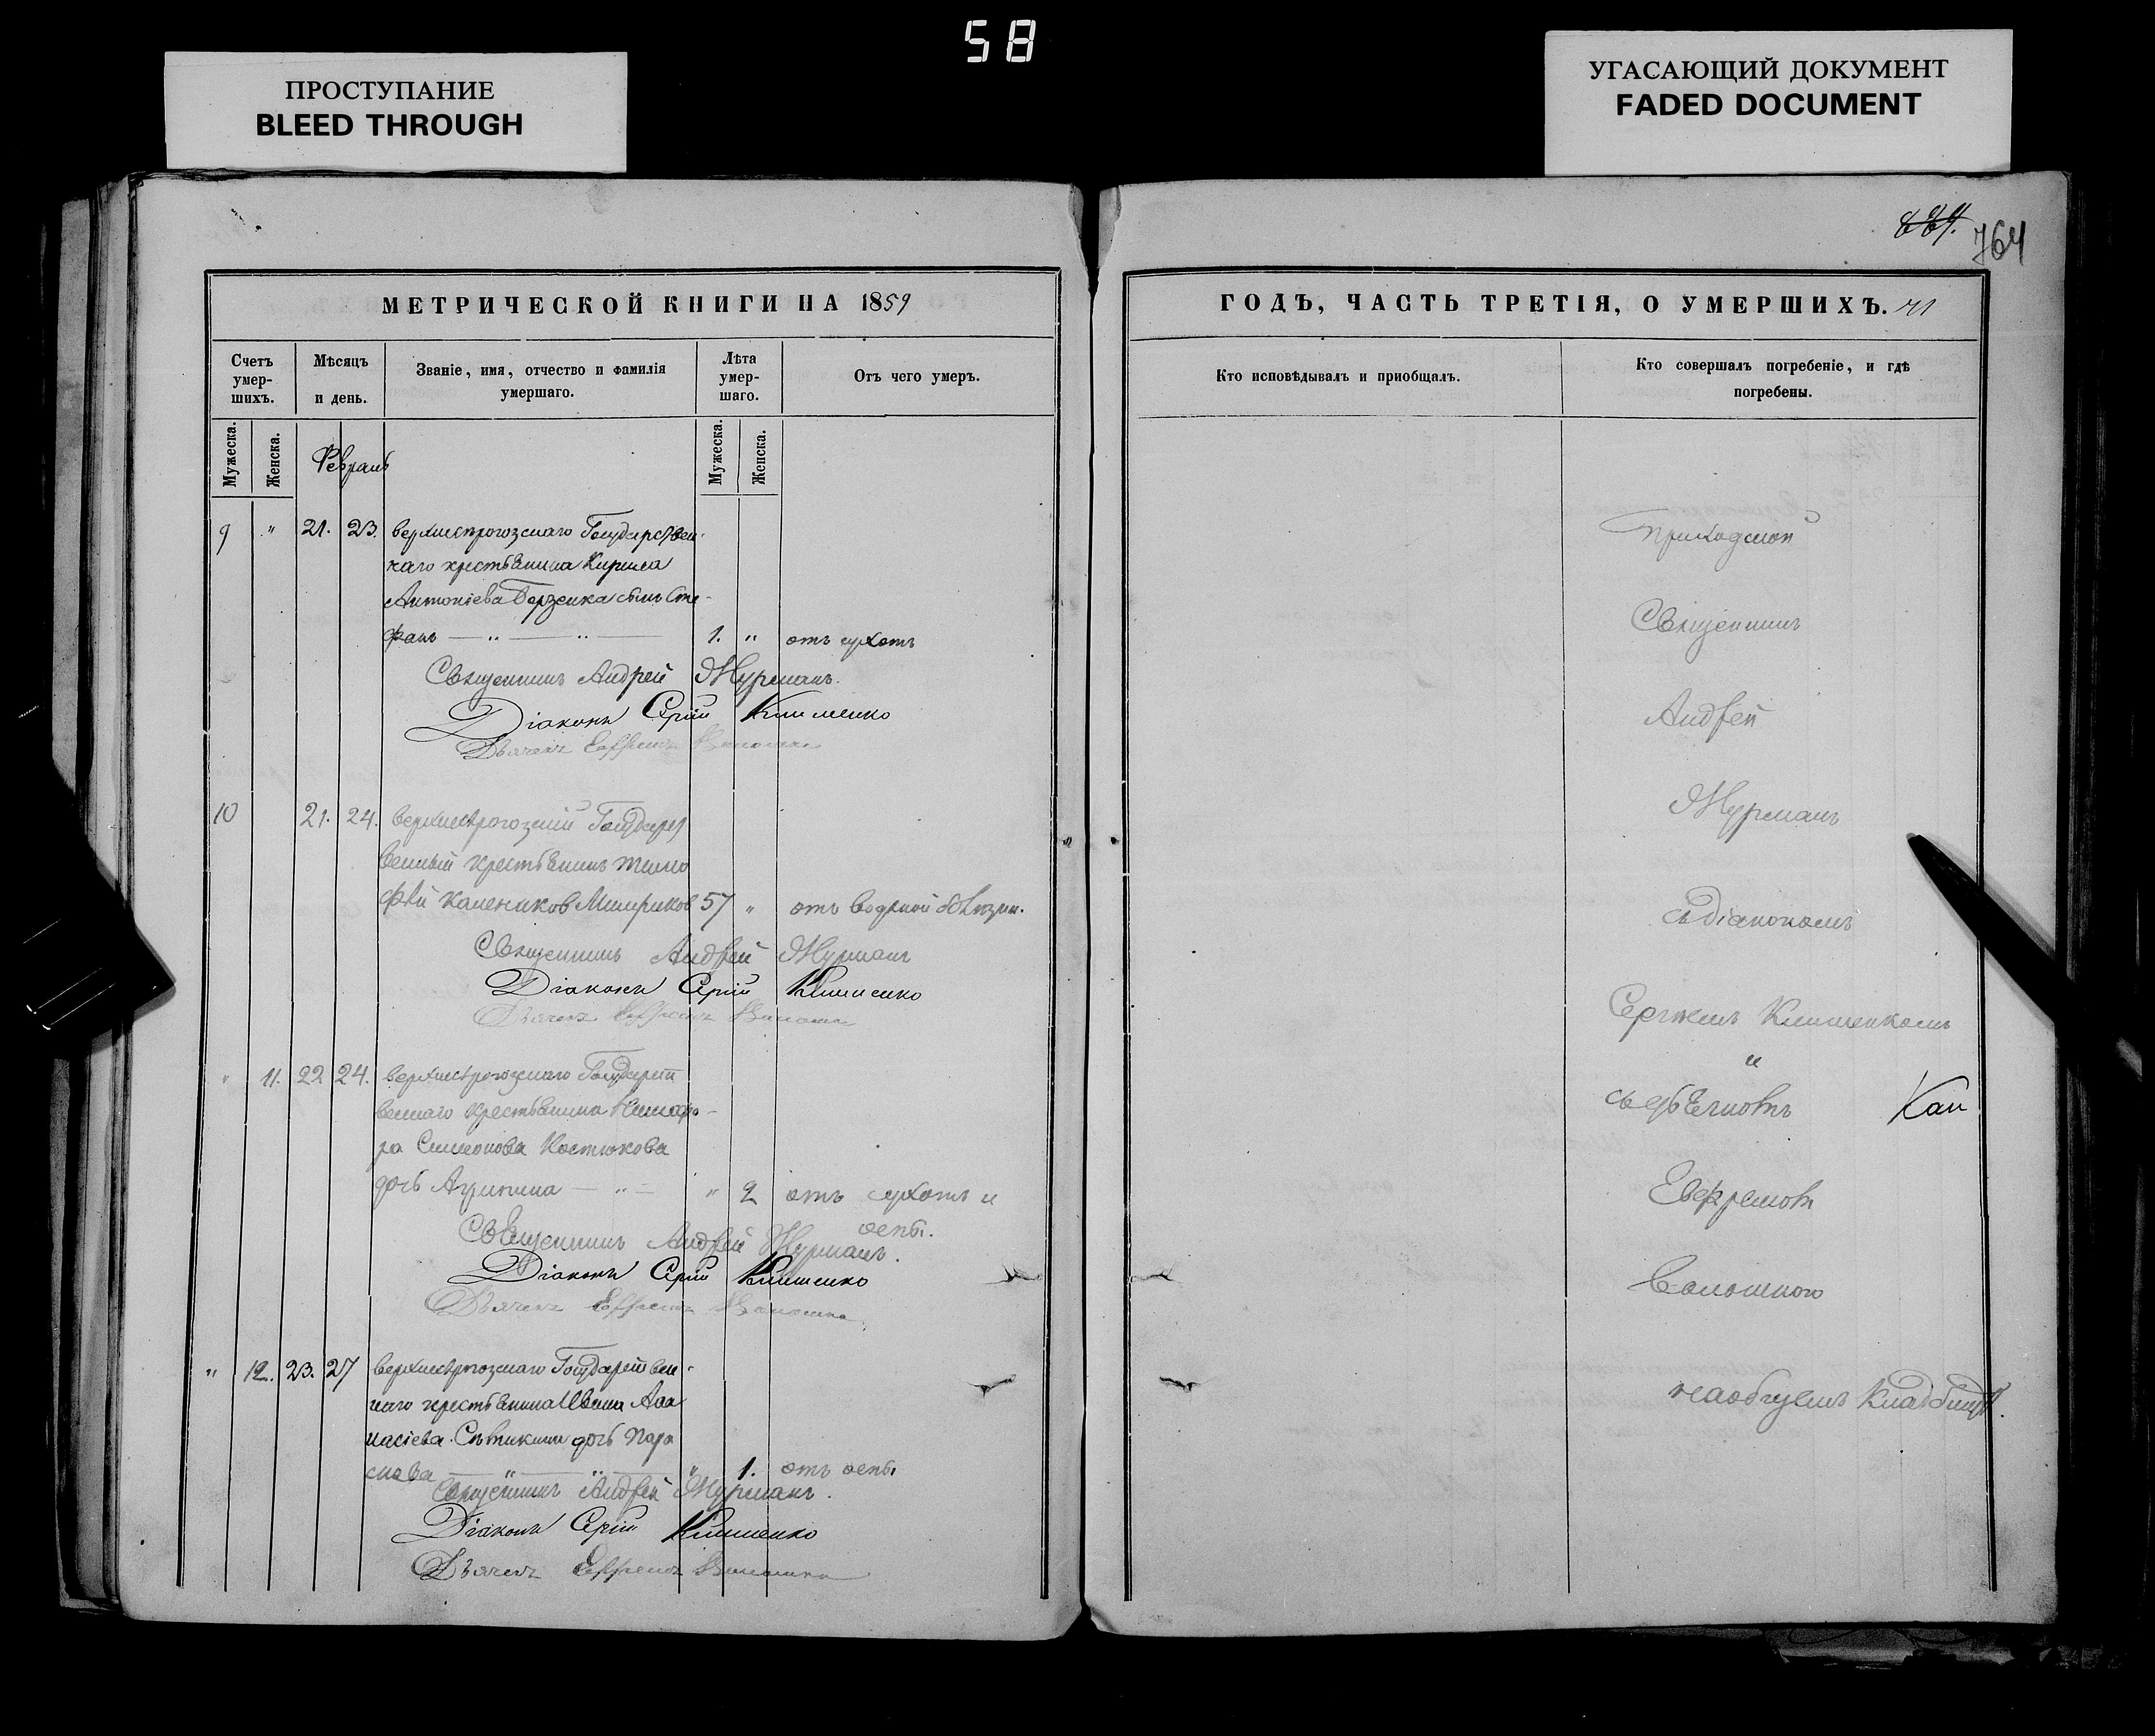 58
ПРОСТУПАНИЕ
BLEED THROUGH
УГАСАЮЩИЙ ДОКУМЕНТ
FADED DOCUMENT
764
МЕТРИЧЕСКОЙ КНИГИ НА 1859
Счетъ умер-шихъ.
Мѣсяцъ и день.
Званіе, имя, отчество и фамилія умершаго.
Лѣта умер-шаго.
Отъ чего умеръ.
Мужеска.
Женска.
Февраль
Мужеска.
Женска.
9 " 21. 23. верхнерогозскаго Государствен-
наго крестьянина Кирила
Антоніева Берзенка сынъ Сте-
фанъ — " — " — 1. " отъ сухотъ
Священникъ Андрей Журманъ.
Діаконъ Сергій Клименко
Дьячекъ
10 21. 24. верхнерогозскій Государст
венный крестьянинъ Тимо
фѣй 57 " отъ водяной болѣзни.
Священникъ Андрей Журманъ
Діаконъ Сергій Клименко
Дьячекъ
" 11. 22 24. верхнерогозскаго Государст
веннаго крестьянина
Симеонова Костюкова
дочь Агрипина — " — " 2 отъ сухотъ и
оспы.
Священникъ Андрей Журманъ.
Діаконъ Сергій Клименко
Дьячекъ
" 12. 23. 27 верхнерогозскаго Государствен-
наго крестьянина Ивана Ада
насіева дочь Пара
скева — " — " — " 1. отъ оспы
Священникъ Андрей Журманъ.
Діаконъ Сергій Клименко
Дьячекъ
ГОДЪ, ЧАСТЬ ТРЕТІЯ, О УМЕРШИХЪ.
Кто исповѣдывалъ и приобщалъ.
Кто совершалъ погребеніе, и гдѣ погребены.
Приходской
Священникъ
Андрей
Журманъ
съ діакономъ
Сергіемъ Клименкомъ
и
Евфремомъ
Волошиного
на общемъ кладбищѣ.